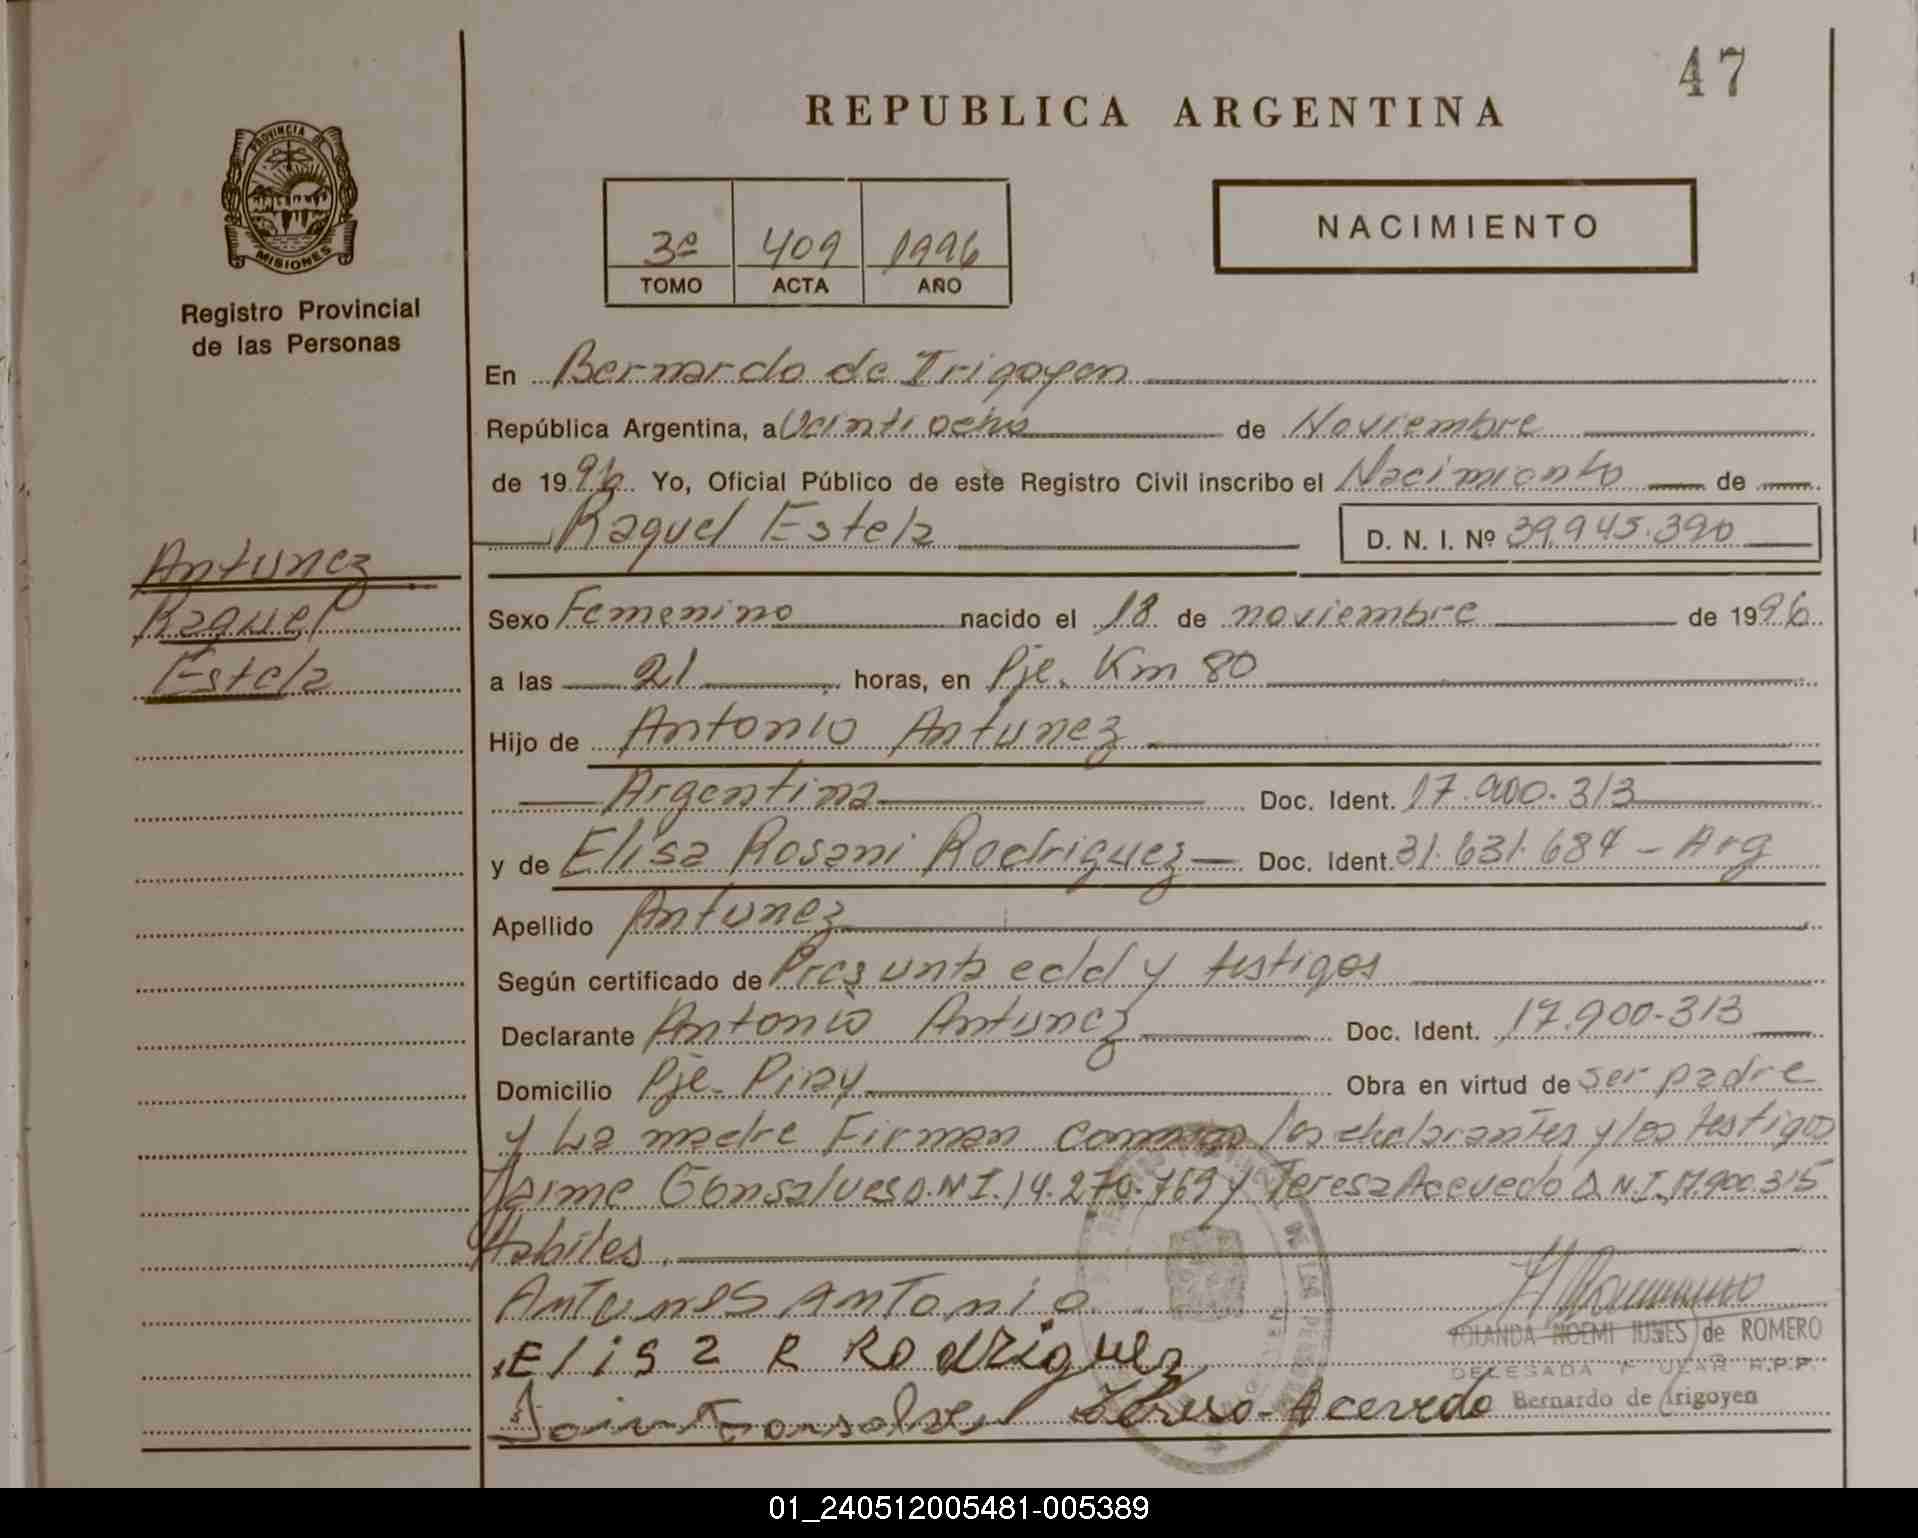 47
REPUBLICA ARGENTINA
PROVINCIA DE
MISIONES
Registro Provincial
de las Personas
3º 409 1996
TOMO ACTA AÑO
NACIMIENTO
En Bernardo de Irigoyen
República Argentina, a Veintiocho de Noviembre
de 1996 Yo, Oficial Público de este Registro Civil inscribo el Nacimiento de
Raquel Estela D. N. I. Nº 39.945.390
Antunez
Raquel
Estela
Sexo Femenino nacido el 18 de noviembre de 1996
a las 21 horas, en Pje. Km 80
Hijo de Antonio Antunez
Argentina Doc. Ident. 17.900.313
y de Elisa Rosani Rodriguez Doc. Ident. 31.631.684 - Arg
Apellido Antunez
Según certificado de Presunta edad y testigos
Declarante Antonio Antunez Doc. Ident. 17.900.313
Domicilio Pje. Piray Obra en virtud de ser padre
y La madre Firman los declarantes y los testigos
Jaime Gonsalves D.N.I. 14.270.769 y Teresa Acevedo D.N.I. 17.900.315
Habiles.
Antunes Antonio
Elisa R Rodriguez
Teresa Acevedo
YOLANDA NOEMI de ROMERO
DELEGADA R.P.P.
Bernardo de Irigoyen
01_240512005481-005389